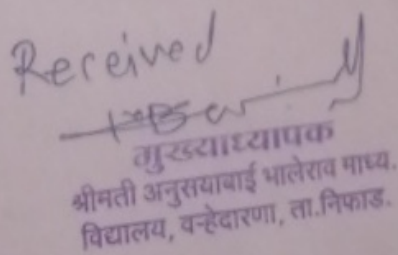 Received
मुख्याध्यापक
श्रीमती अनुसयाबाई भालेराव माध्य.
विद्यालय, वऱ्हेदारणा, ता.निफाड.